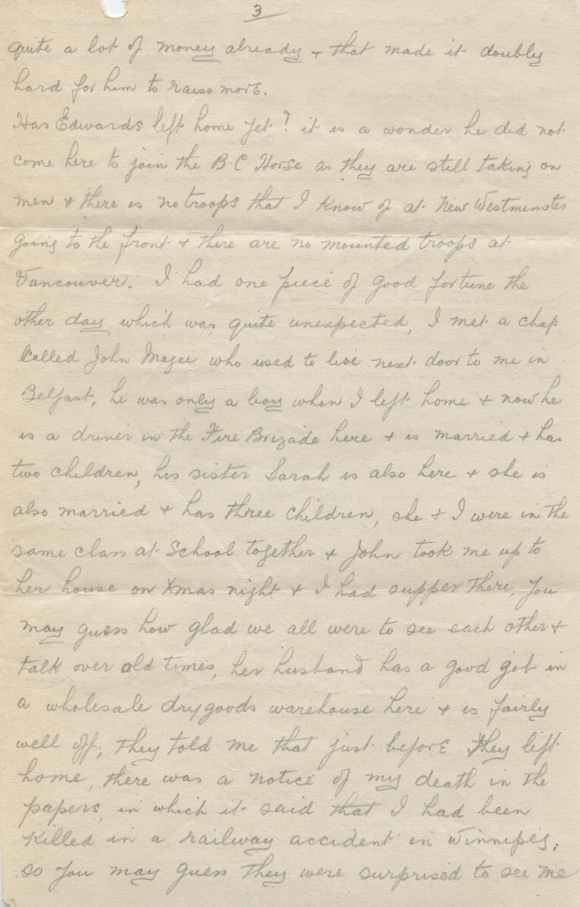 3
quite a lot of money already + that made it doubly
hard for him to raise more.
Has Edwards left home yet? it is a wonder he did not
come here to join the B.C Horse as they are still taking on
men + there is no troops that I know of at New Westminster
going to the front + there are no mounted troops at
Vancouver. I had one piece of good fortune the
other day which was quite unexpected, I met a chap
called John Magee who used to live next door to me in
Belfast, he was only a boy when I left home + now he
is a driver in the Fire Brigade here + is married + has
two children, his sister Sarah is also here + she is
also married + has three children, she + I were in the
same class at School together + John took me up to
her house on Xmas night + I had supper there. You
may guess how glad we all were to see each other +
talk over old times, her husband has a good job in
a wholesale drygoods warehouse here + is fairly
well off, they told me that just before they left
home, there was a notice of my death in the
papers, in which it said that I had been
killed in a railway accident in Winnipeg,
so you may guess they were surprised to see me